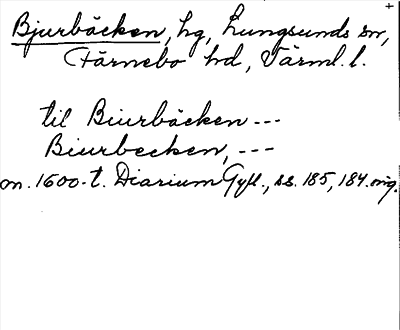 +
Bjurbäcken, hg, Lungsunds sn,
Färnebo hd, Värml. l.
til Biurbäcken ---
Biurbecken, ---
om. 1600-t. Diarium Gyll., ss. 185, 184. orig.